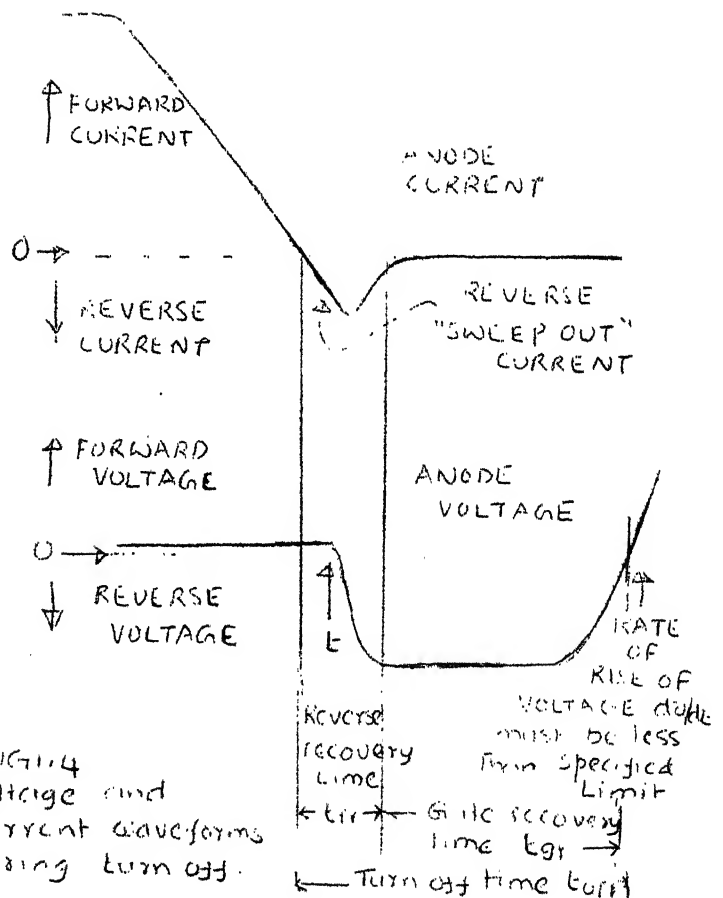 FORWARD
CURRENT
ANODE
CURRENT
0
REVERSE
CURRENT
REVERSE
"SWEEP OUT"
CURRENT
FORWARD
VOLTAGE
ANODE
VOLTAGE
0
REVERSE
VOLTAGE
t
RATE
OF
RISE OF
VOLTAGE dv/dt
must be less
than Specified
Limit
Reverse
recovery
time
trr
Gate recovery
time tgr
Turn off time toff
FIG 1.4
Voltage and
current waveforms
during turn off.